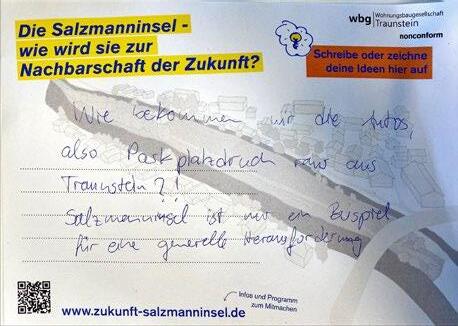 Die Salzmanninsel -
wie wird sie zur
Nachbarschaft der Zukunft?
wbg Wohnungsbaugesellschaft
Traunstein
nonconform
Schreibe oder zeichne
deine Ideen hier auf
Wie bekommen wir die Autos,
also Parkplatzdruck raus aus
Traunstein?!
Salzmanninsel ist nur ein Beispiel
für eine generelle Herausforderung
Infos und Programm
zum Mitmachen
www.zukunft-salzmanninsel.de